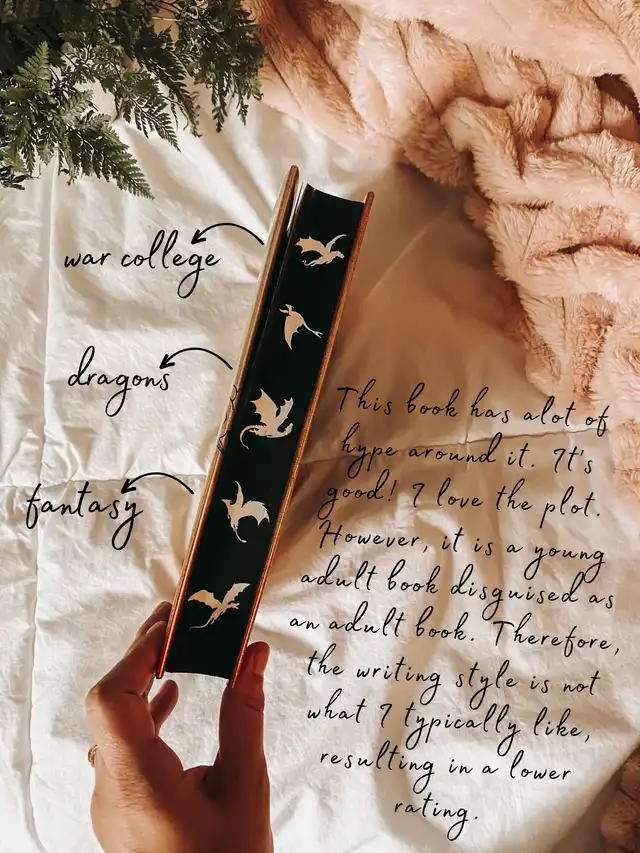 war college
dragons
fantasy
This book has alot of
hype around it. It's
good! I love the plot.
However, it is a young
adult book disguised as
an adult book. Therefore,
the writing style is not
what I typically like,
resulting in a lower
rating.